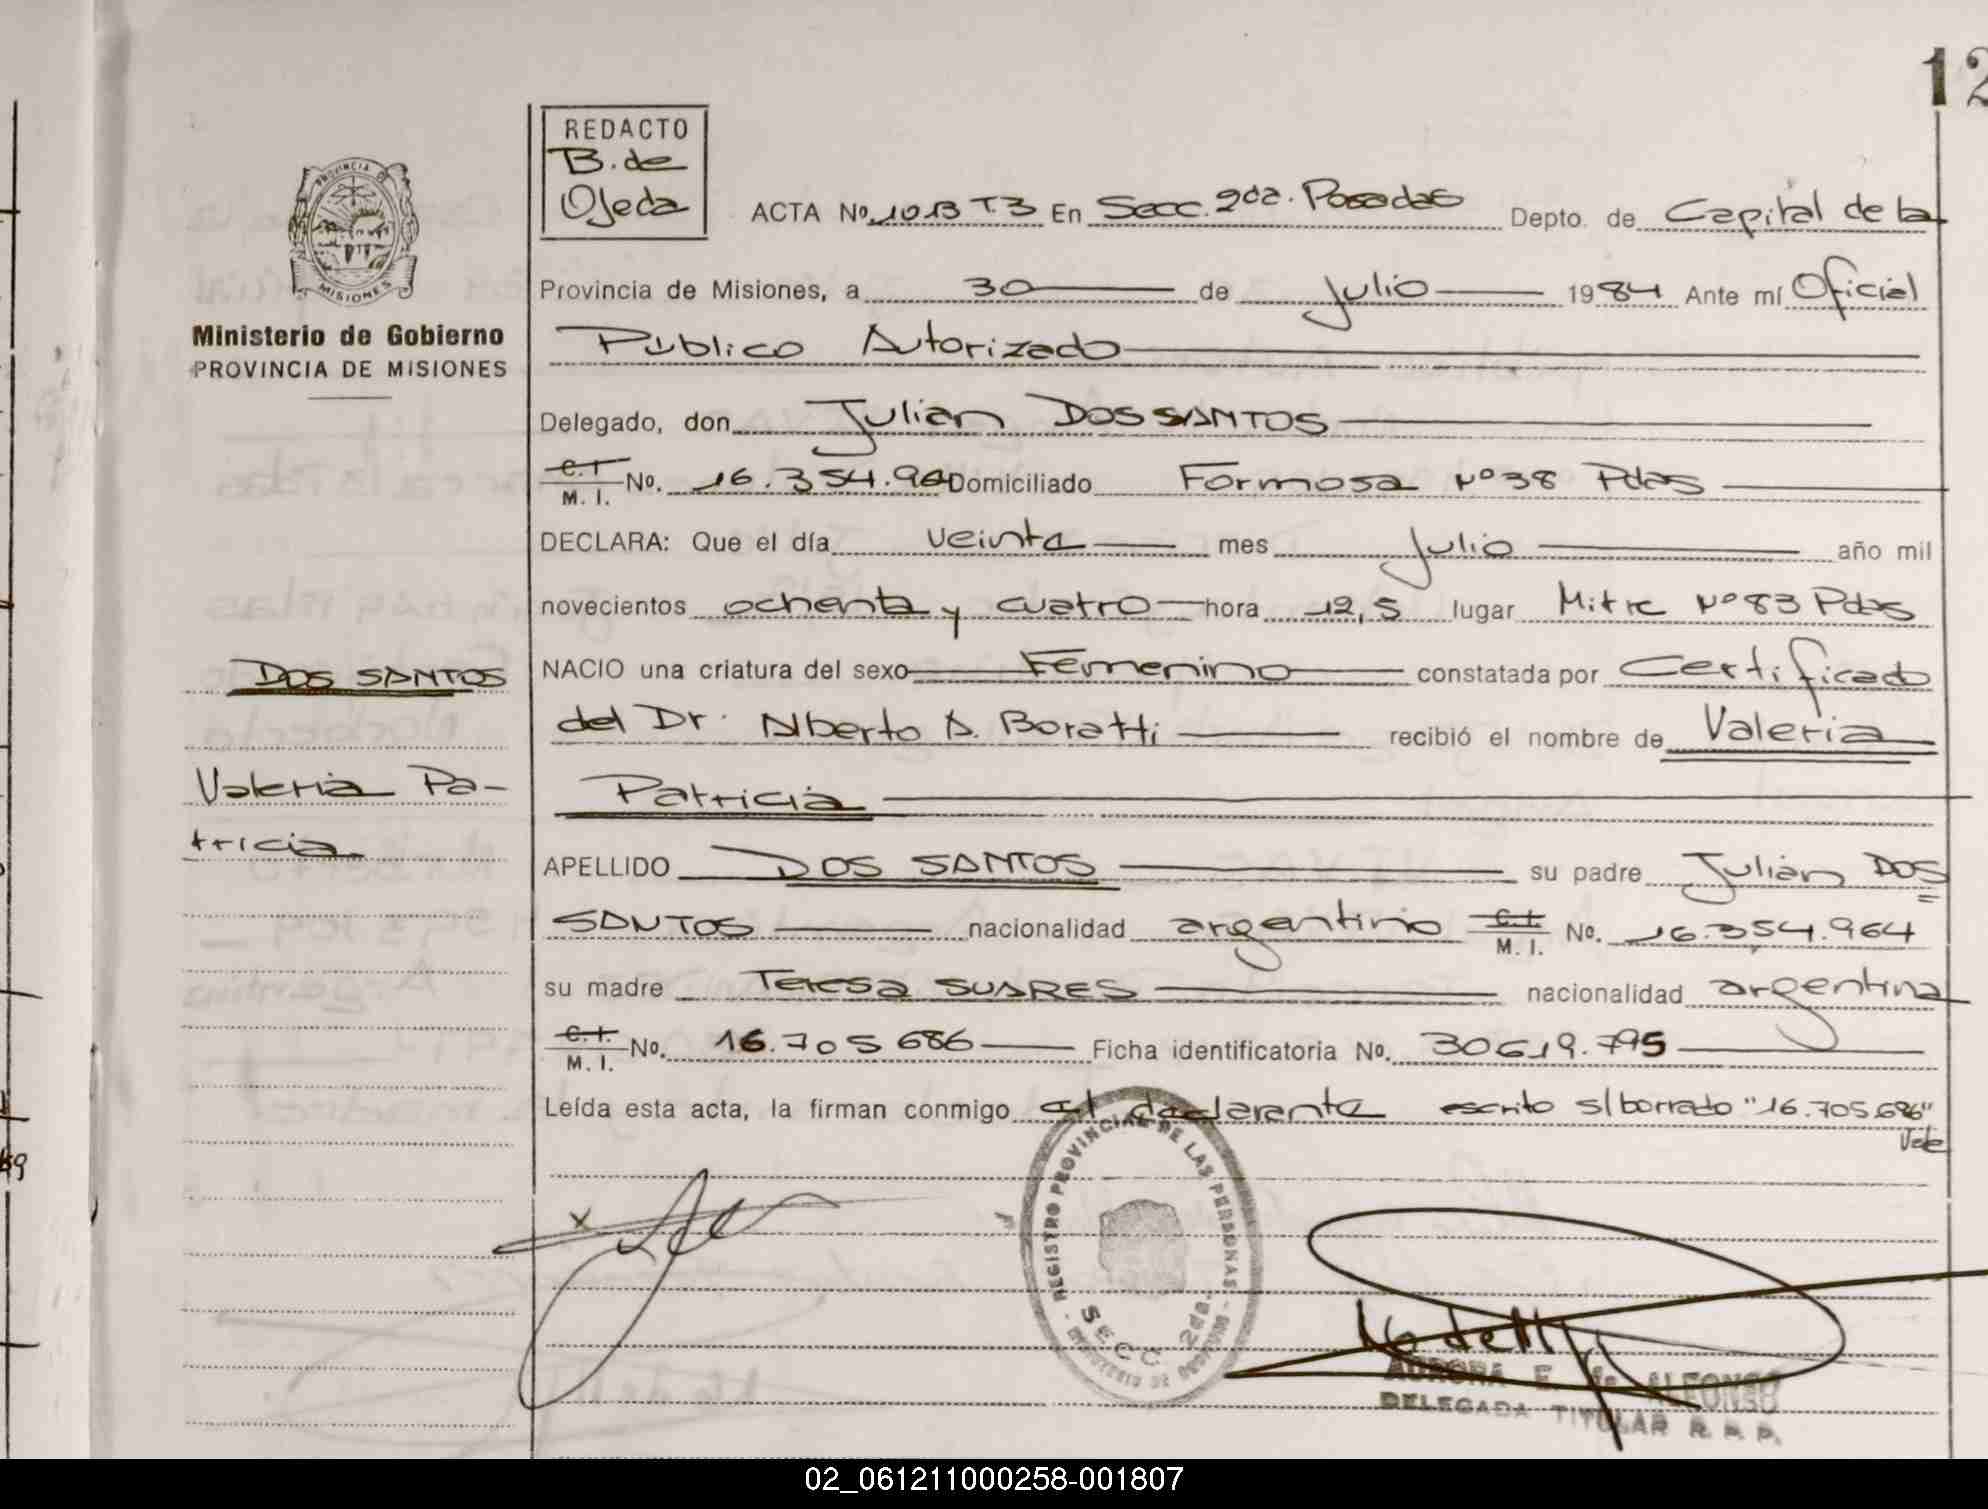 12
REDACTO
B. de
Ojeda
PROVINCIA DE
MISIONES
Ministerio de Gobierno
PROVINCIA DE MISIONES
ACTA Nº. 1013 T.3 En Secc. 2da. Posadas Depto. de Capital de la
Provincia de Misiones, a 30 de Julio 1984 Ante mí Oficial
Público Autorizado
Delegado, don Julian DOS SANTOS
C.I. M. I. No. 16.354.964 Domiciliado Formosa Nº 38 Pdas
DECLARA: Que el día veinte mes Julio año mil
novecientos ochenta y cuatro hora 12,5 lugar Mitre Nº 83 Pdas
DOS SANTOS
NACIO una criatura del sexo Femenino constatada por Certificado
del Dr. Alberto A. Boratti recibió el nombre de Valeria
Valeria Pa-
Patricia
tricia
APELLIDO DOS SANTOS su padre Julian DOS
SANTOS nacionalidad argentino C.I. M. I. Nº. 16.354.964
su madre Teresa SUARES nacionalidad argentina
C.I. M. I. No. 16.705 686 Ficha identificatoria No. 30619.795
Leída esta acta, la firman conmigo el declarante escrito s/borrado "16.705.686"
Vale
x
REGISTRO PROVINCIAL DE LAS PERSONAS
SECC. 2da.
AURORA E. de ALFONSO
DELEGADA TITULAR R. P. P.
02_061211000258-001807